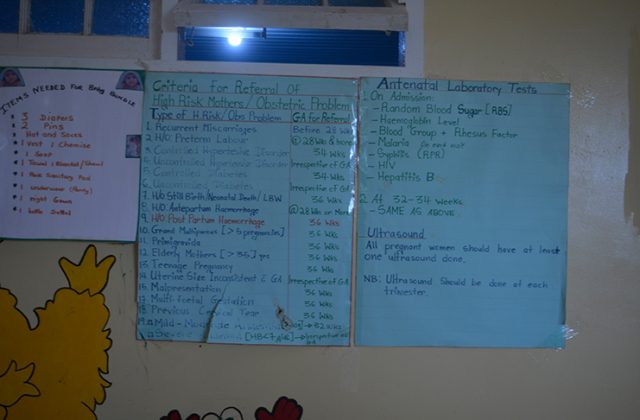 ITEMS NEEDED FOR Baby BUNDLE
3 Diapers
2 Pins
Hat and Socks
1 Vest 1 Chemise
1 Soap
1 Towel 1 Blanket/Shawl
1 Sanitary Pad
1 underwear (Panty)
1 night Gown
1 bottle Dettol
Criteria For Referral Of
High Risk Mothers / Obstetric Problem
Type of H Risk/Obs Problem GA for Referral
1. Recurrent Miscarriages Before 28 Wks
2. H/O Preterm Labour @ 28 Wks &
3. Controlled Hypertensive Disorder 34 Wks
4. Uncontrolled Hypertensive Disorder Irrespective of GA
5. Controlled Diabetes 34 Wks
6. Uncontrolled Diabetes Irrespective of GA
7. H/O Still Birth/Neonatal Death/LBW 36 Wks
8. H/O Antepartum Haemorrhage @ 28 Wks or More
9. H/O Post Partum Haemorrhage 36 Wks
10. Grand Multiparous [>5 pregnancies] 36 Wks
11. Primigravida 36 Wks
12. Elderly Mothers [>35] yrs 36 Wks
13. Teenage Pregnancy 36 Wks
14. Uterine Size Inconsistent GA Irrespective of GA
15. Malpresentation 36 Wks
Multi-Foetal Gestation 36 Wks
18. Previous Cervical Tear 36 Wks
19. a Mild - Moderate 32 Wks
Severe [HB<7 g/dL] → Irrespective of GA
Antenatal Laboratory Tests
1. On Admission:
- Random Blood Sugar [RBS]
- Haemoglobin Level
- Blood Group + Rhesus Factor
- Malaria
- Syphilis (RPR)
- HIV
- Hepatitis B
2. At 32-34 weeks
- SAME AS ABOVE.
Ultrasound
All pregnant women should have at least
one ultrasound done.
NB: Ultrasound Should be done at each
trimester.